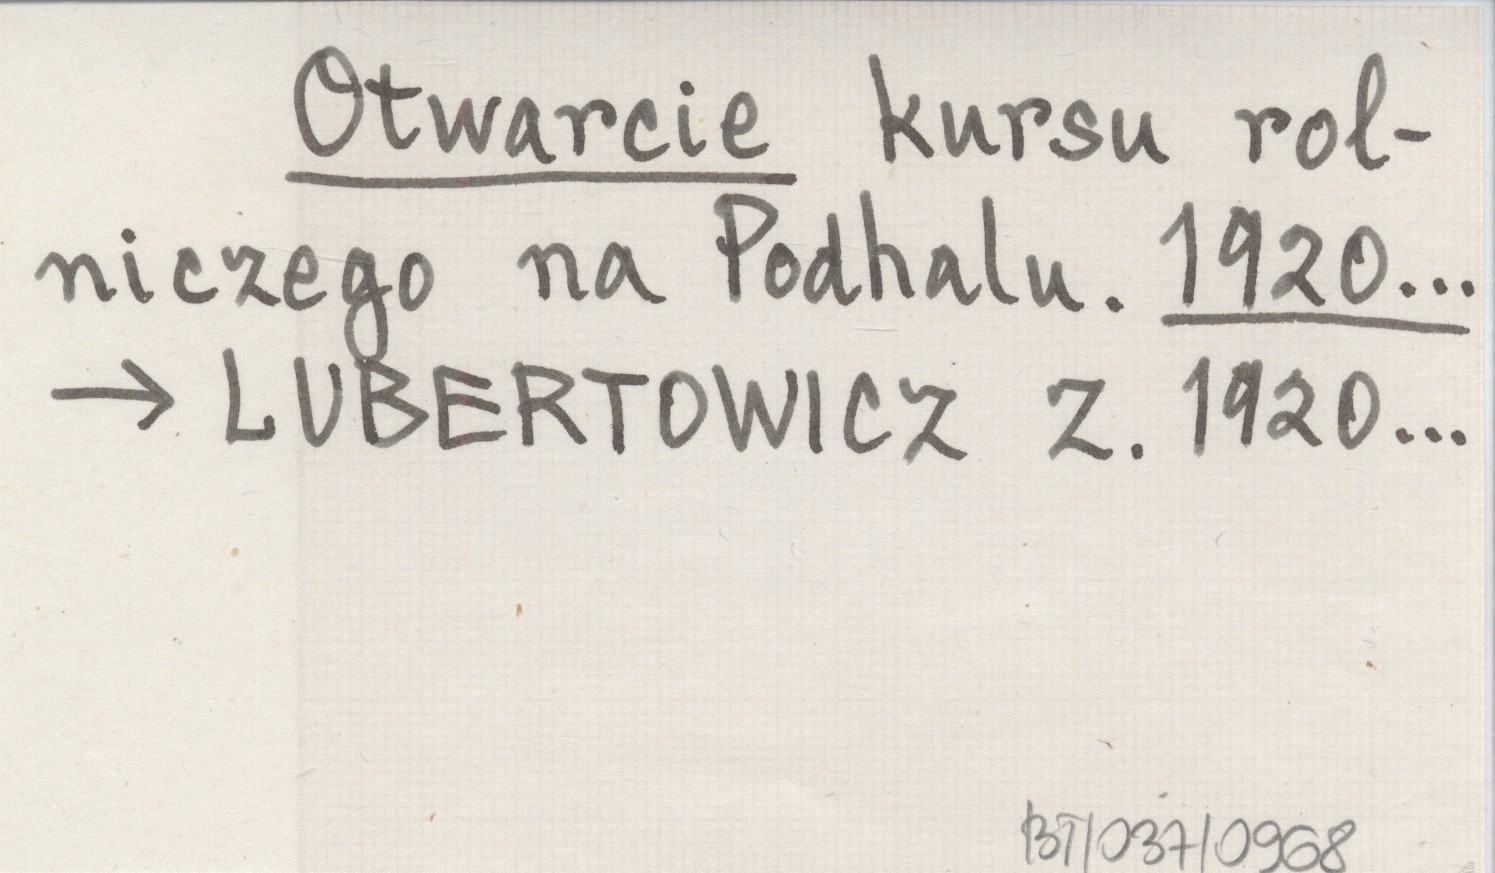 Otwarcie kursu rol-
niczego na Podhalu. 1920...
→ LUBERTOWICZ Z. 1920...
BT/037/0968